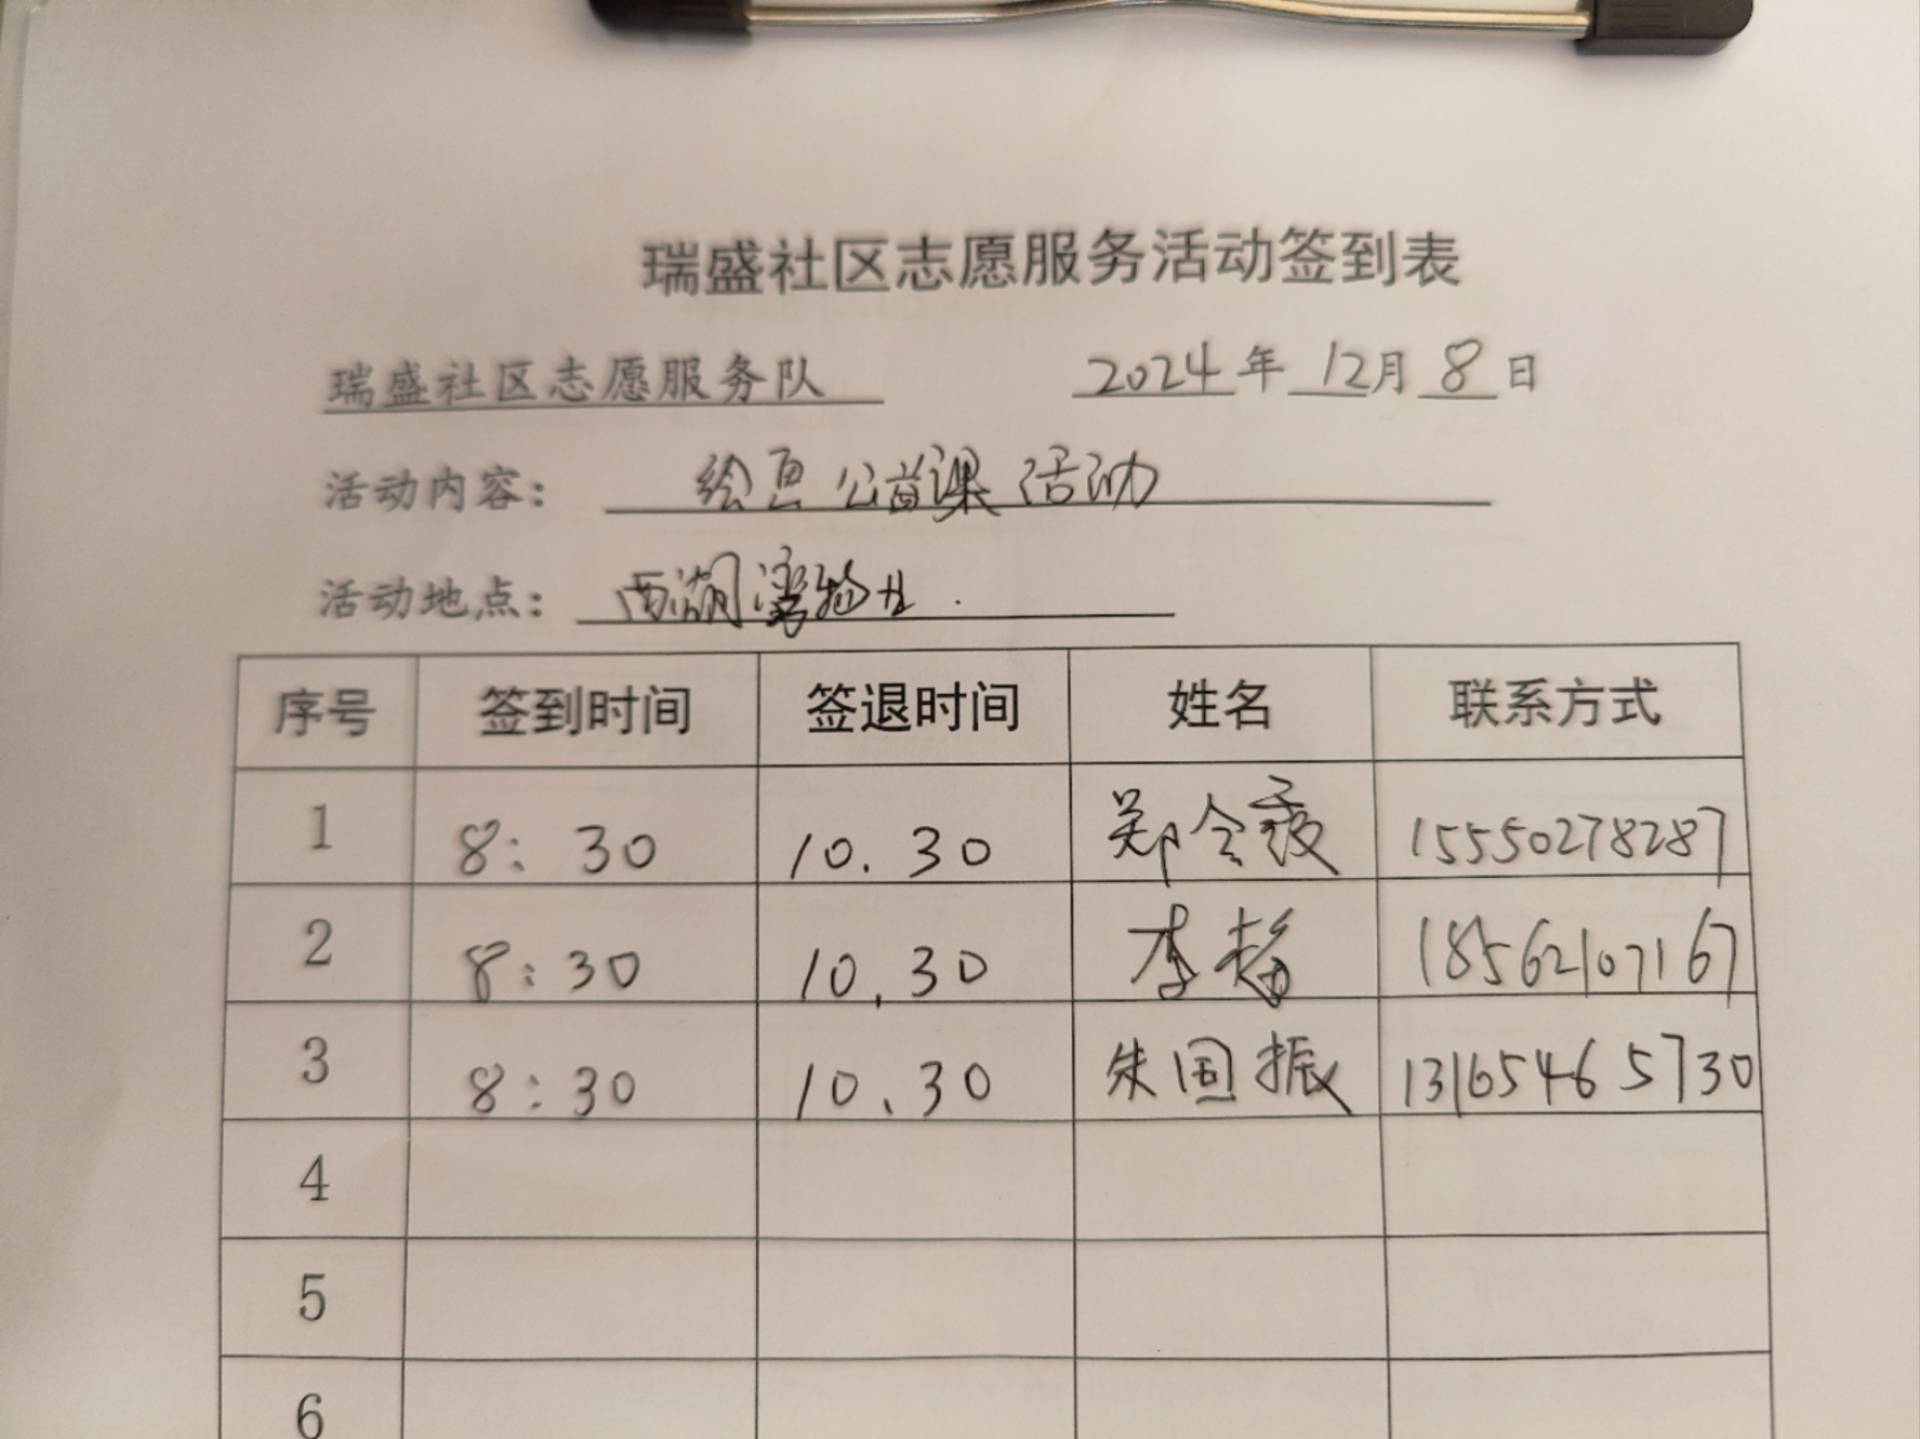 瑞盛社区志愿服务活动签到表
瑞盛社区志愿服务队 2024年12月8日
活动内容: 绘画公益课活动
活动地点: 西湖湾物业.
序号 签到时间 签退时间 姓名 联系方式
1 8:30 10.30 郑令 15550278287
2 8:30 10.30 李 18562107167
3 8:30 10.30 朱国振 13165465730
4
5
6